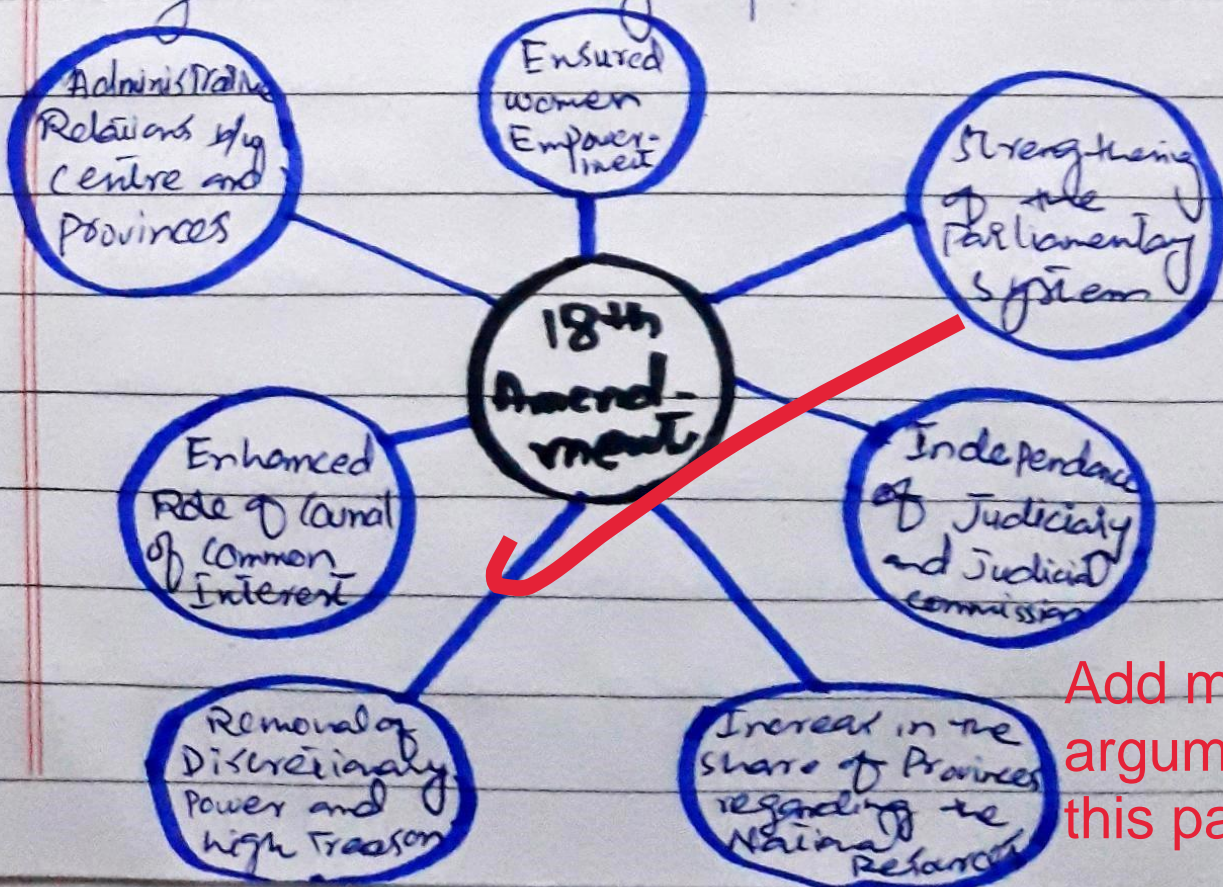 Administrative
Relations b/w
Centre and
Provinces
Ensured
women
Empower-
ment
Strengthening
of the
Parliamentary
System
18th
Amend-
ment
Enhanced
Role of
of Common
Interest
Independence
of Judiciary
and Judicial
commission
Removal of
Discretionary
Power and
high Treason
Increase in the
share of Provinces
regarding the
National
Resources
Add m
argum
this pa